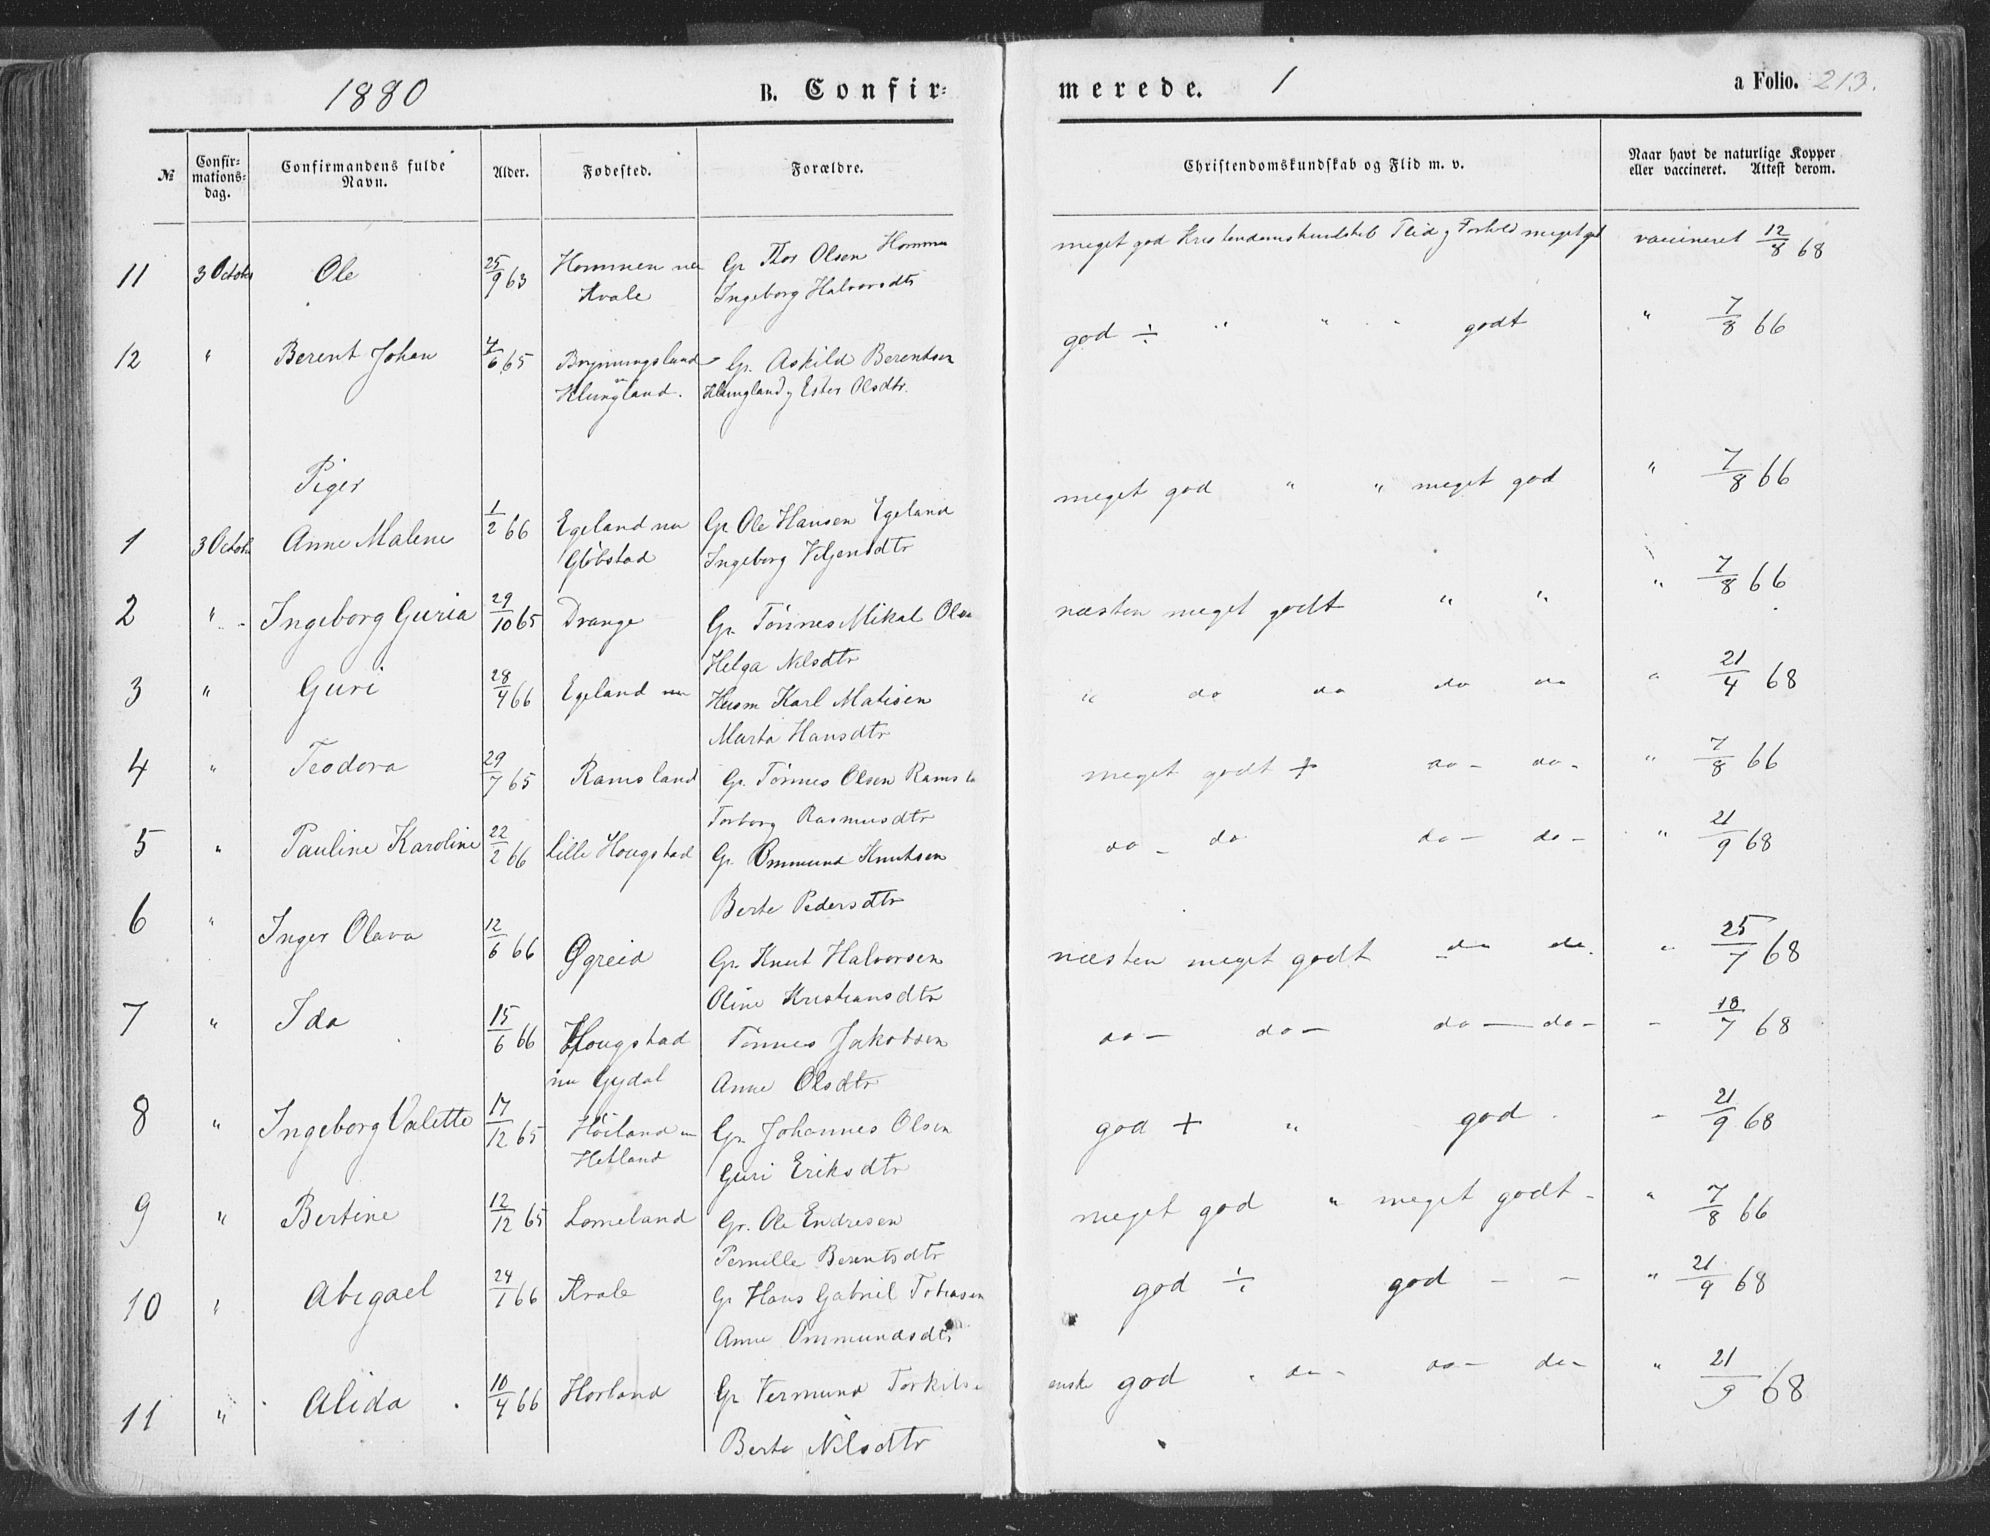 1880 B. Confir= merede. 1 a Folio. 213.
№ Confir=mations=dag. Confirmandens fulde Navn. Alder. Fødested. Forældre. Christendomskundskab og Flid m. v. Naar havt de naturlige Kopper eller vaccineret. Attest derom.
11 3 Octobr Ole 25/9 63 Hommen nu Gr Thor Olsen Homme meget god Kristendomskundskab Flid og Forhold meget godt vaccineret 12/8 68
Kvale Ingeborg Halvorsdtr
12 " Berent Johan 4/6 65 Bryningsland Gr. Askild Berentsen god ÷ " " " godt " 7/8 66
Klungland. Klungland og Ester Olsdtr.
Piger
1 3 Octobr Anne Malene 1/2 66 Egeland nu Gr Ole Hansen Egeland meget god " " meget god " 7/8 66
Gløbstad Ingeborg Veljensdtr
2 " Ingeborg Guria 29/10 65 Drange Gr. Tønnes Mikal Olsen næsten meget godt " " " 7/8 66
Helga Nilsdtr
3 " Guri 28/4 66 Egeland nu Husm Karl Matisen " do do do do " 21/4 68
Marta Hansdtr
4 " Teodora 29/7 65 Ramsland Gr. Tønnes Olsen Ramsla meget godt + do - do - " 7/8 66
Torborg Rasmusdtr
5 " Pauline Karoline 22/2 66 Lille Hougstad Gr. Ommund Knutsen do - do do - do - " 21/9 68
Berte Pedersdtr
6 " Inger Olava 12/6 66 Øgreid Gr. Knut Halvorsen næsten meget godt do do. " 25/7 68
Oline Kristiansdtr
7 " Ida 15/6 66 Hougstad Tønnes Jakobsen do - do - do - do - - 18/7 68
nu Gydal Anne Olsdtr
8 " Ingeborg Valette 17/12 65 Høiland Gr. Johannes Olsen god + " god - 21/9 68
Hetland Guri Eriksdtr
9 " Bertine 12/12 65 Lomeland Gr. Ole Endresen meget god " meget godt - " 7/8 66
Pernille Berentsdtr
10 " Abigael 24/1 66 Kvale Gr Hans Gabriel Tobiasen god ÷ god - - " 21/9 68
Anne Ommundsdtr
11 " Alida 10/4 66 Horland Gr Vermund Torkilse god " do - do - do - " 21/9 68
Berte Nilsdtr